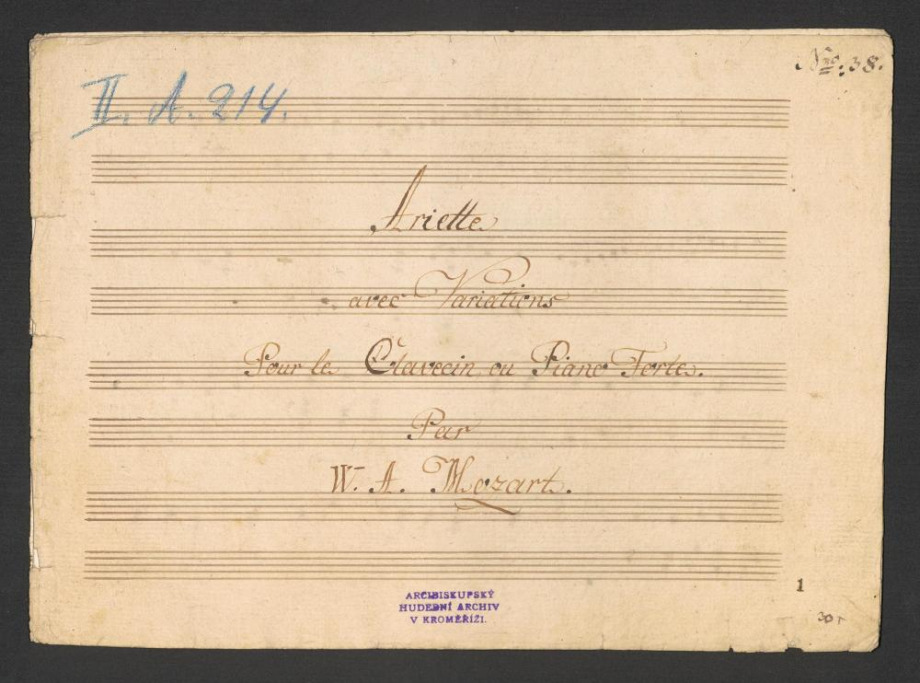 Nro. 38.
II. A. 214.
Ariette
avec Variations
Pour le Clavecin ou Piano Forte.
Par
W. A. Mozart.
ARCIBISKUPSKÝ
HUDEBNÍ ARCHIV
V KROMĚŘÍŽI.
1